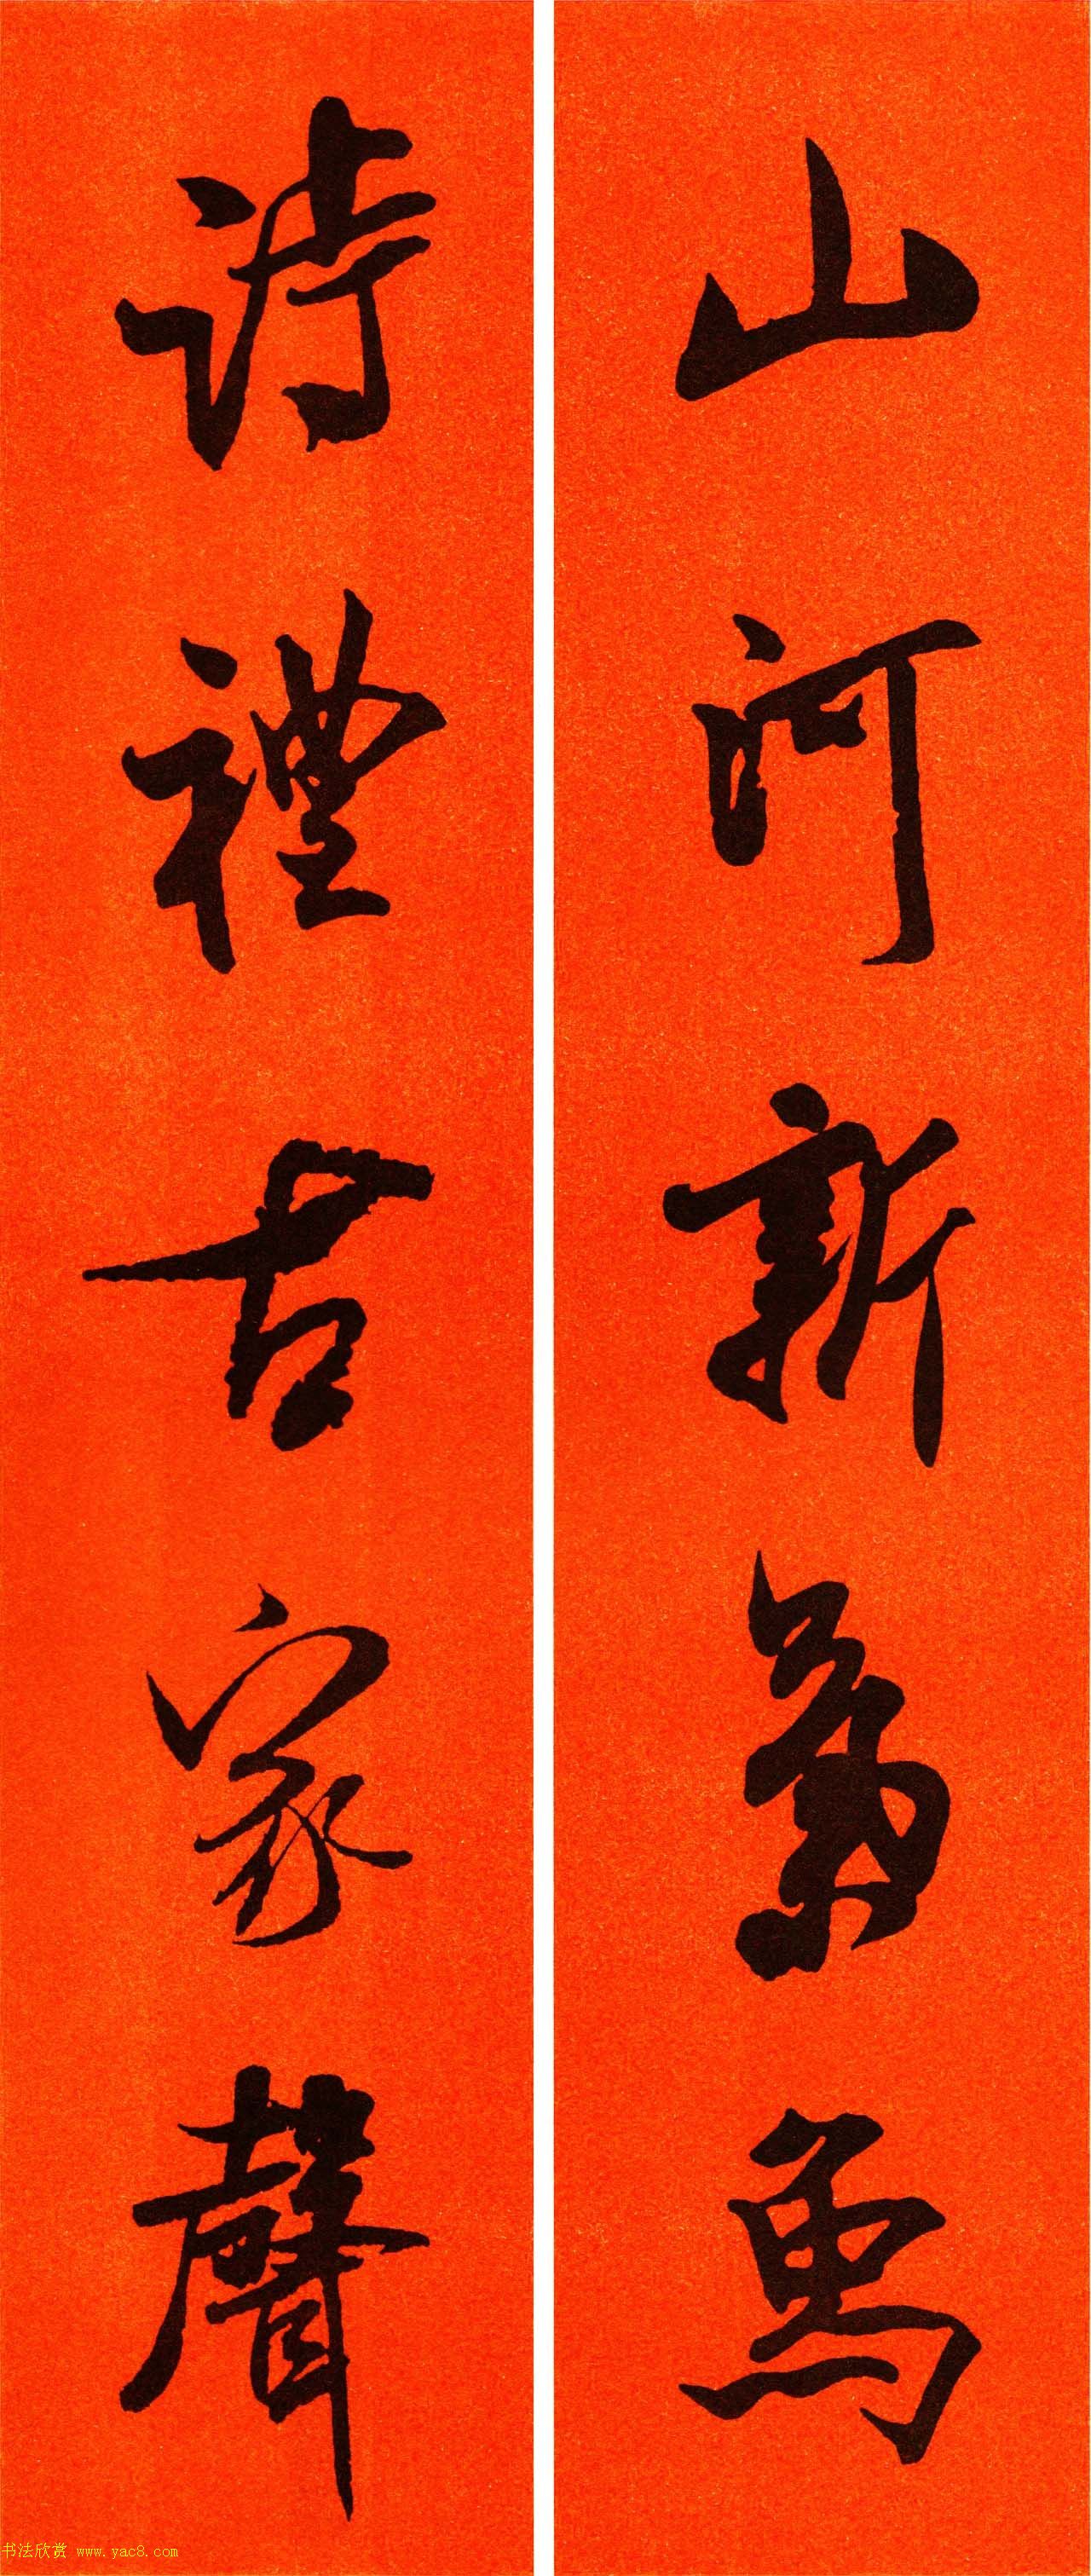 山河新氣象
詩禮古家聲
书法欣赏 www.yac8.com